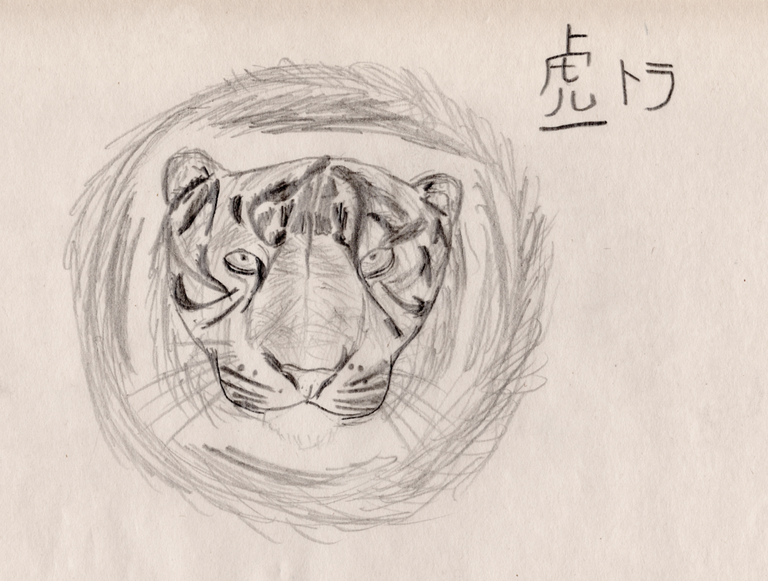 虎 トラ